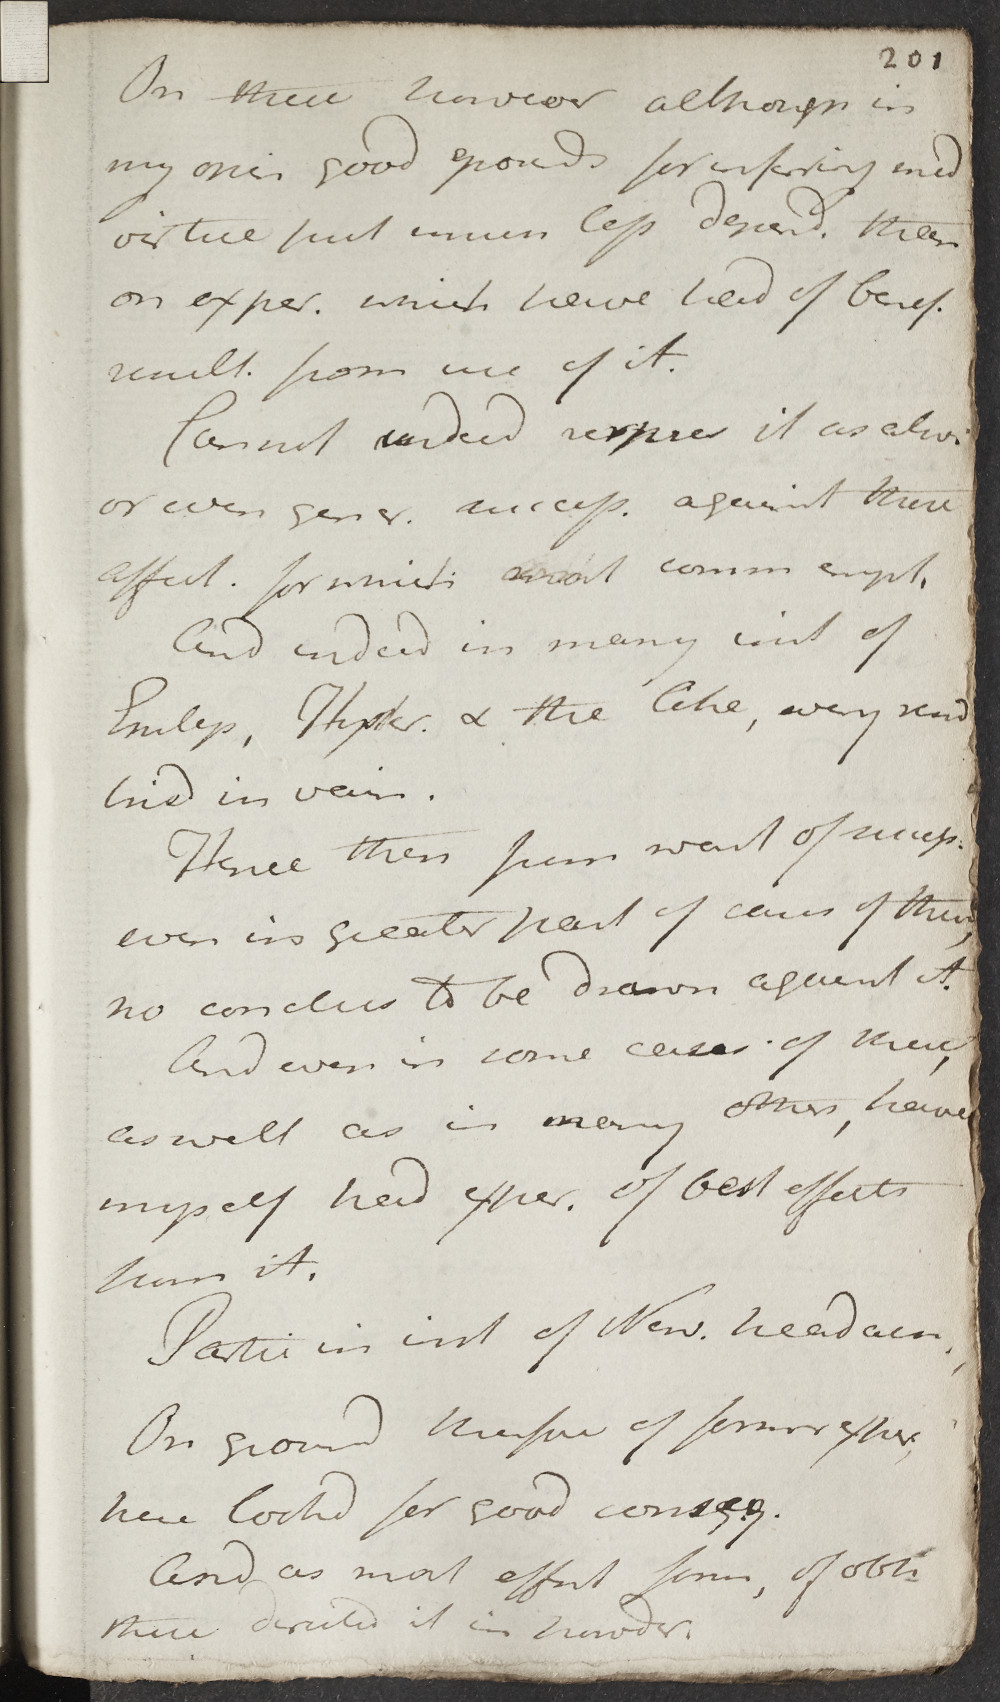 201
On these however although in
my opin good grounds for inferring med
virtue put much less depend. than
on exper. which have had of benef.
result. from use of it.
Cannot indeed repres it as alw.
or even gener. success. against those
affect. for which most comm empl.
And indeed in many inst of
Epileps, Hyster. & the like, every rem
tried in vain.
Hence then from want of success.
even in greater part of cases of these,
no conclus to be drawn against it.
And even in some cases of these,
as well as in many others, have
myself had exper. of best effects
from it.
Partic in inst of Nerv. headach,
On ground therefore of former exper,
here look'd for good conseq.
And as most effect form, of obt
these directed it in powder.